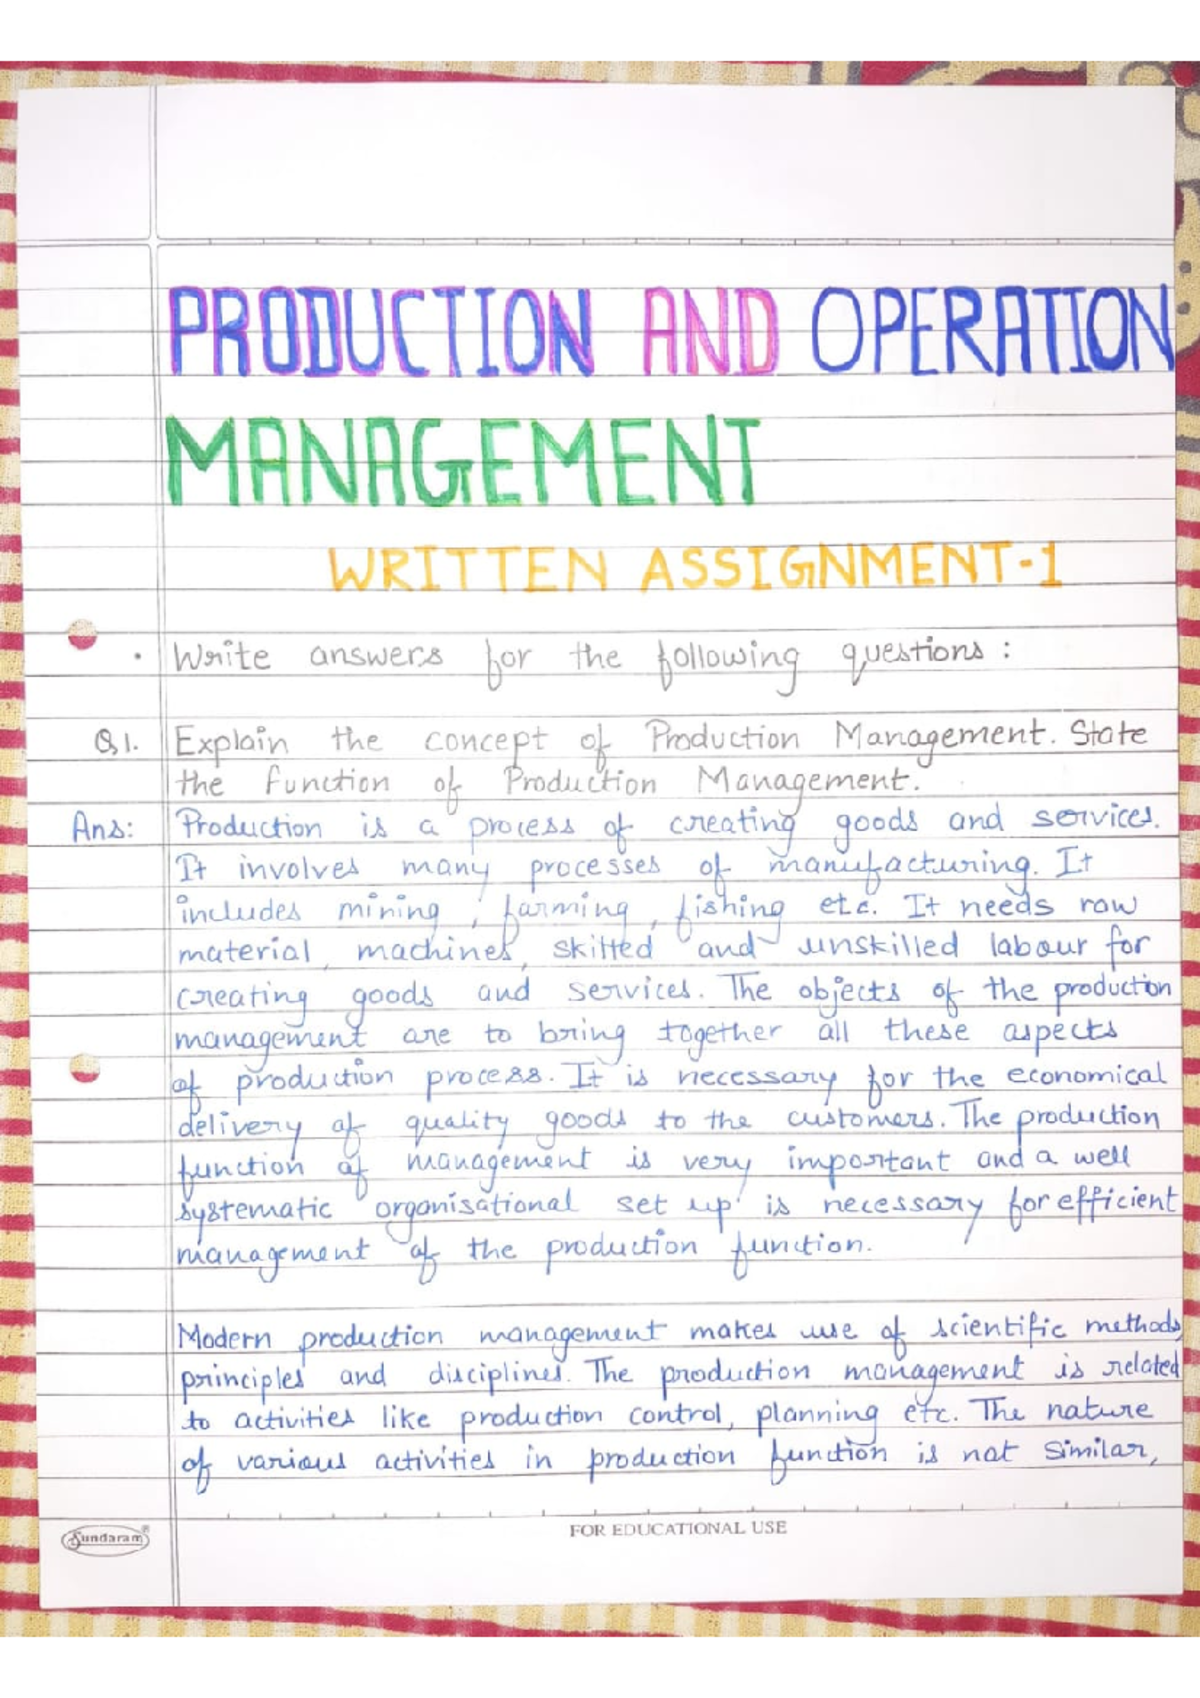 PRODUCTION AND OPERATION
MANAGEMENT
WRITTEN ASSIGNMENT-1
• Write answers for the following questions :
Q1. Explain the concept of Production Management. State
the function of Production Management.
Ans: Production is a process of creating goods and services.
It involves many processes of manufacturing. It
includes mining, farming, fishing etc. It needs raw
material, machines, skilled and unskilled labour for
creating goods and services. The objects of the production
management are to bring together all these aspects
of production process. It is necessary for the economical
delivery of quality goods to the customers. The production
function of management is very important and a well
systematic organisational set up is necessary for efficient
management of the production function.
Modern production management makes use of scientific methods
principles and disciplines. The production management is related
to activities like production control, planning etc. The nature
of various activities in production function is not similar,
Sundaram®
FOR EDUCATIONAL USE